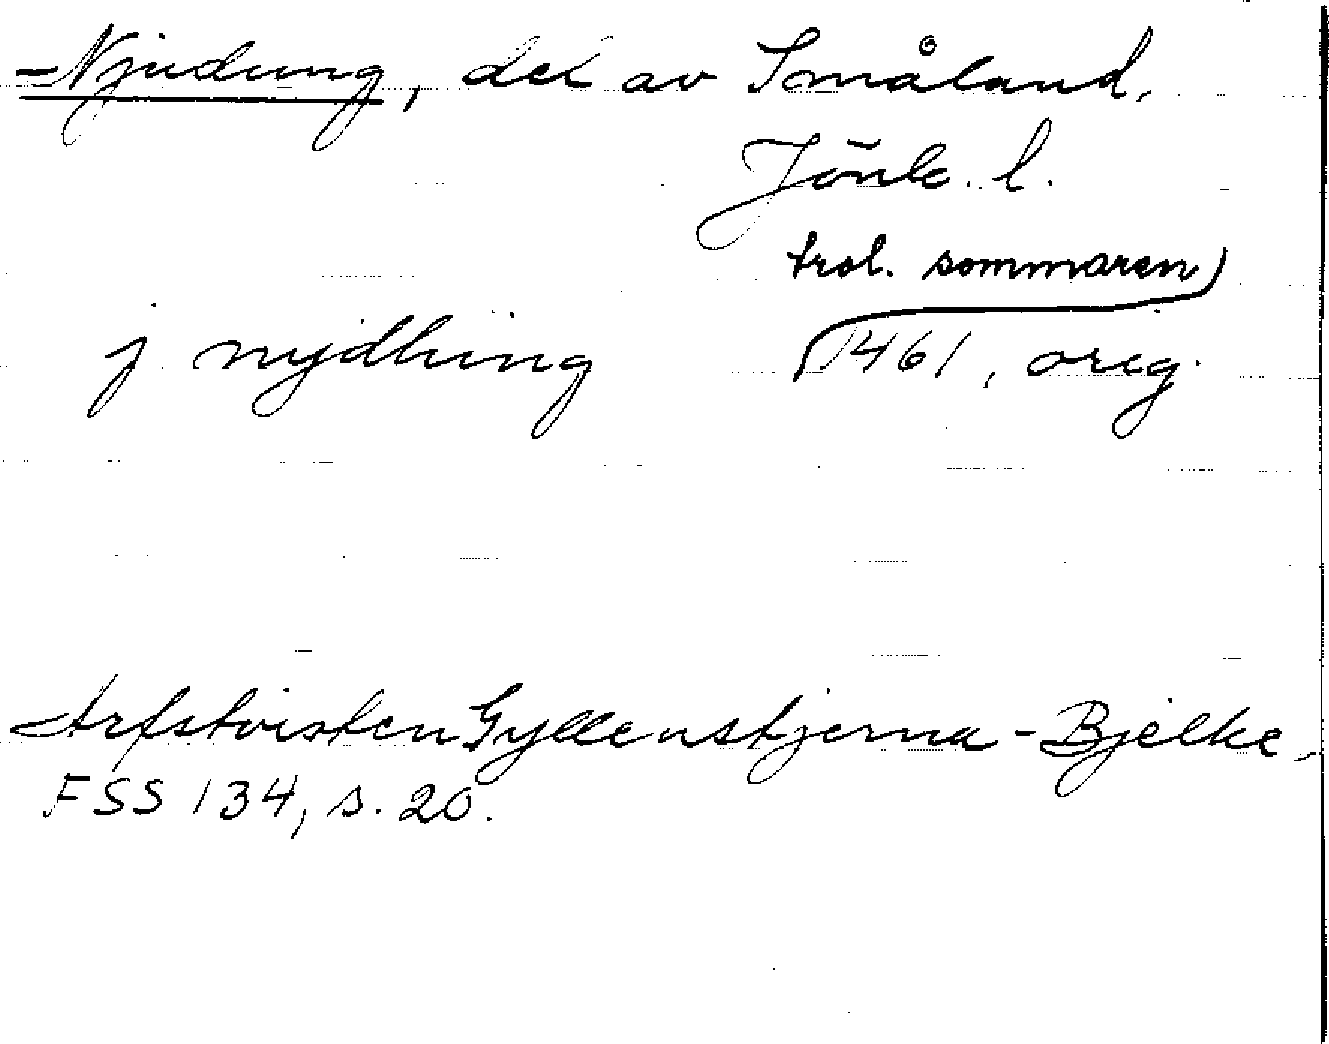 Njudung, del av Småland,
Jönk. l.
trol. sommaren
j nydhung 1461, orig.
Arfstvisten Gyllenstjerna - Bjelke,
FSS 134, s. 20.